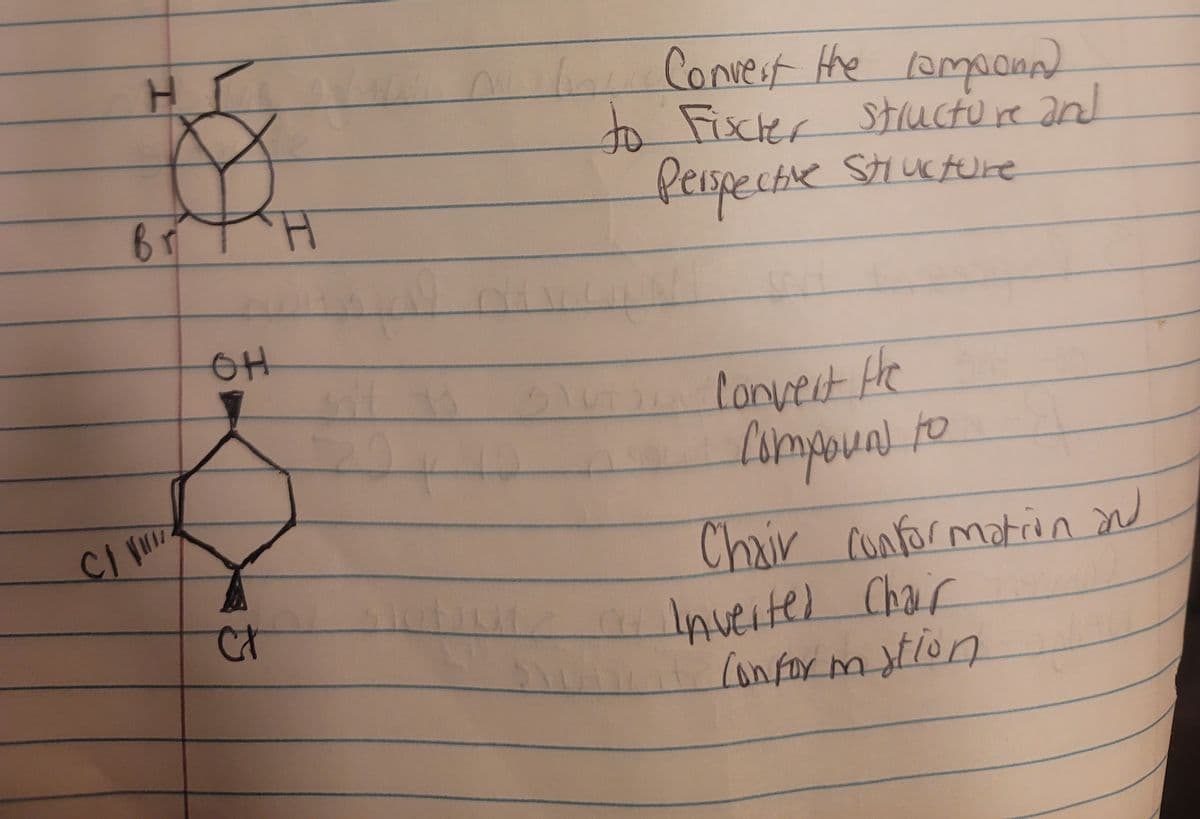 H
Br
H
Convert the compound
to Fischer structure and
Perspective Structure
OH
Cl
Cl
Convert the
Compound to
Chair conformation and
Inverted Chair
Conformation